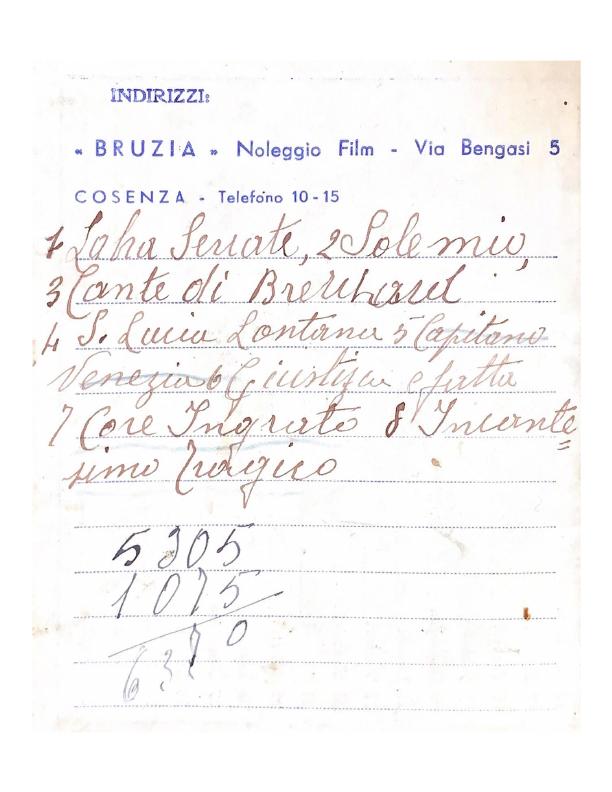 INDIRIZZI:
« BRUZIA » Noleggio Film - Via Bengasi 5
COSENZA - Telefono 10-15
1 Serrate, 2 Sole mio,
3 di
4 S. Lucia Lontana 5 Capitano
Venezia 6 Giustizia è fatta
7 Core Ingrato 8 Incante
simo Tragico
5305
1075
6370